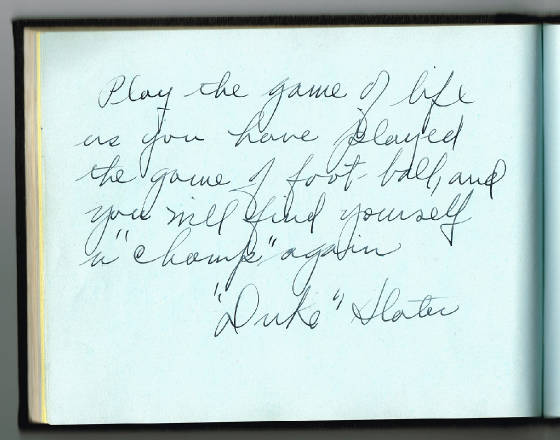 Play the game of life
as you have played
the game of foot-ball, and
you will find yourself
a "champ" again
"Duke" Slater